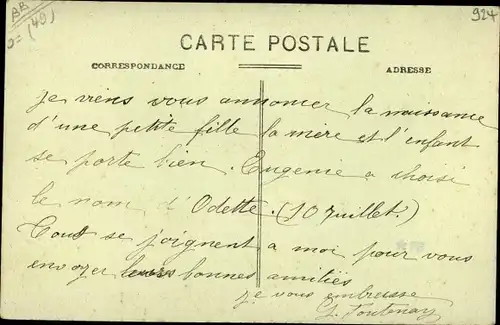 BB
(49)
924
CARTE POSTALE
CORRESPONDANCE
ADRESSE
je viens vous annoncer la naissance
d'une petite fille la mère et l'enfant
se porte bien. Eugenie a choisi
le nom d'Odette. (10 juillet.)
Tous se joignent a moi pour vous
envoyer leurs bonnes amitiés
je vous embrasse